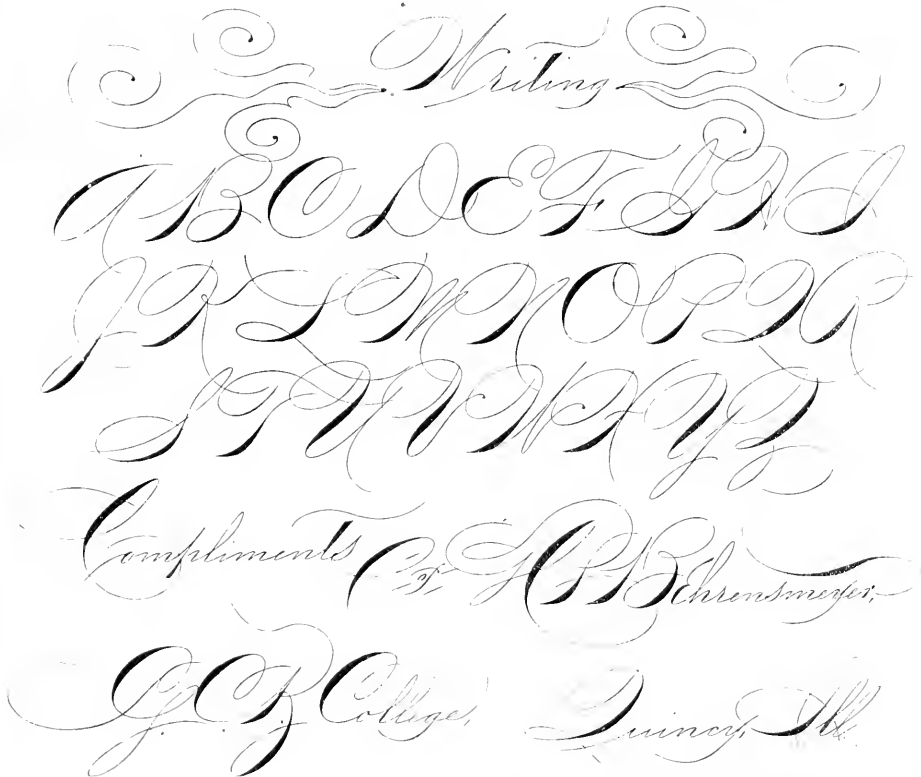 Writing
A B C D E F G H I
J K L M N O P Q R
S T U V W X Y Z
Compliments Of H P Behrensmeyer,
G. C. B. College, Quincy, Ill.